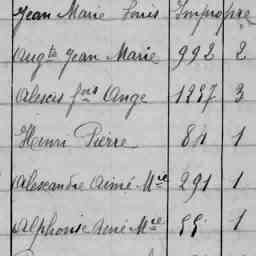 Jean Marie Louis Impropre
Augte Jean Marie 992 2
Alexis fois Ange 1237 3
Henri Pierre 84 1
Alexandre Aimé Mie 291 1
Alphonse Aimé Mie 55 1